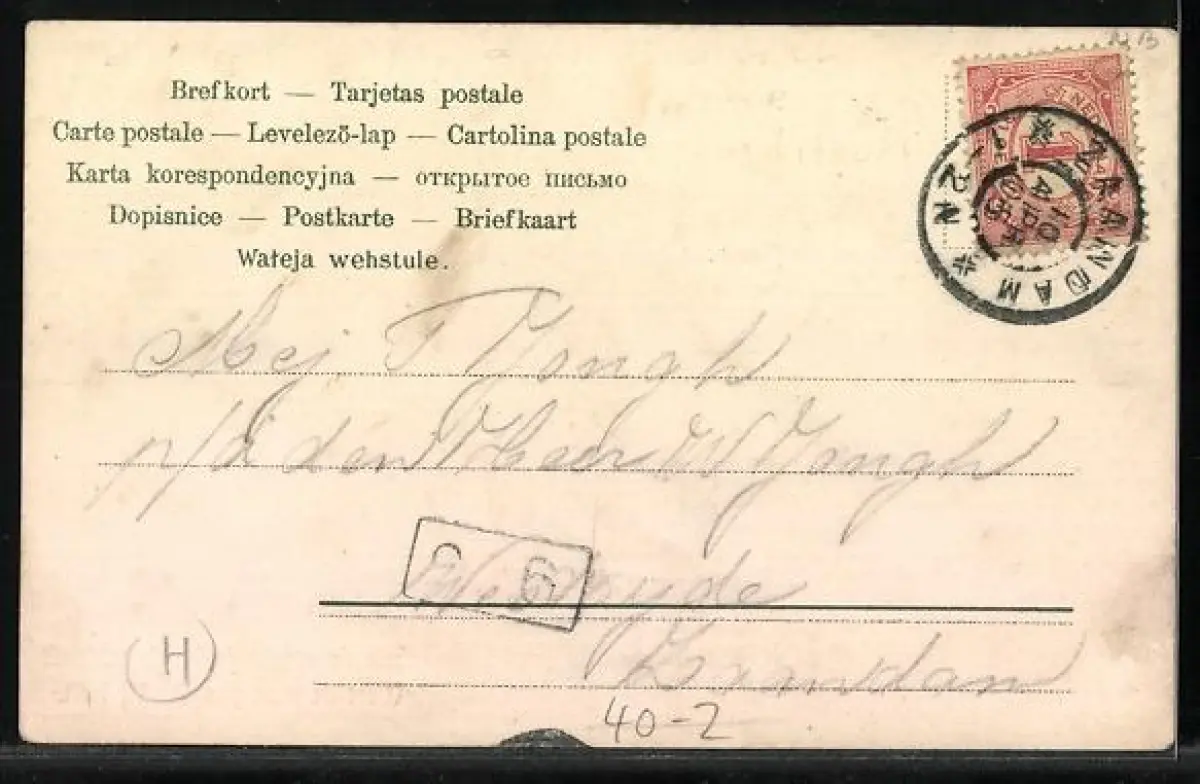 Brefkort — Tarjetas postale
Carte postale — Levelezō-lap — Cartolina postale
Karta korespondencyjna — открытое письмо
Dopisnice — Postkarte — Briefkaart
Wałeja wehstule.
ZAANDAM
10 APR 05
4-
12 N
1
Mej T Jongh
p/a den Heer W Jongh
Westzyde
Zaandam
H
40-2